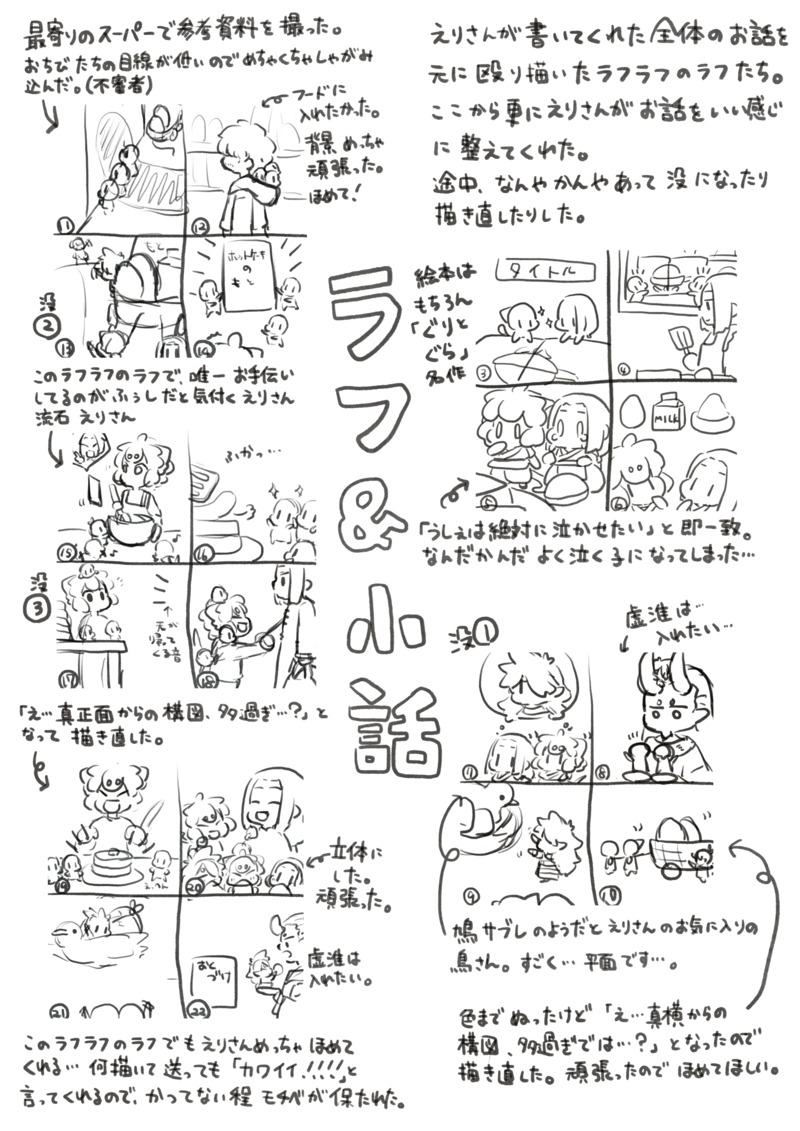 えりさんが書いてくれた全体のお話を
元に殴り描いたラフラフのラフたち。
ここから更にえりさんがお話をいい感じ
に整えてくれた。
途中、なんやかんやあって没になったり
描き直したりした。
ラフ&小話
絵本は
もちろん
「ぐりと
ぐら」
名作
タイトル
③
④
MILK
⑤
⑥
「うしぇは絶対に泣かせたい」と即一致。
なんだかんだよく泣く子になってしまった…
没①
虚淮は…
入れたい…
⑦
⑧
⑨
⑩
鳩サブレのようだとえりさんのお気に入りの
鳥さん。すごく…平面です…。
色までぬったけど「え…真横からの
構図、多過ぎでは…?」となったので
描き直した。頑張ったのでほめてほしい。
最寄りのスーパーで参考資料を撮った。
おちびたちの目線が低いのでめちゃくちゃしゃがみ
込んだ。(不審者)
フードに
入れたかった。
背景めっちゃ
頑張った。
ほめて!
⑪
⑫
没
②
もと
ホットケーキ
の
もと
⑬
⑭
このラフラフのラフで、唯一お手伝い
してるのがふぅしだと気付くえりさん
流石えりさん
ふかっ…
⑮
⑯
没
③
↑
元が
帰って
くる音
⑰
⑱
「え…真正面からの構図、多過ぎ…?」と
なって描き直した。
⑲
⑳
立体に
した。
頑張った。
おと
づけ
虚淮は
入れたい。
㉑
㉒
このラフラフのラフでもえりさんめっちゃほめて
くれる…何描いて送っても「カワイイ!!!!」と
言ってくれるので、かつてない程モチベが保たれた。